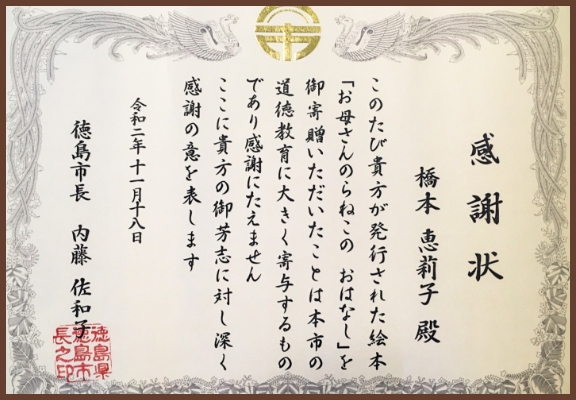 感謝状
橋本 恵莉子 殿
このたび貴方が発行された絵本
「お母さんのらねこの おはなし」を
御寄贈いただいたことは本市の
道徳教育に大きく寄与するもの
であり感謝にたえません
ここに貴方の御芳志に対し深く
感謝の意を表します
令和二年十一月十八日
徳島市長 内藤 佐和子
徳島県
徳島市
長之印